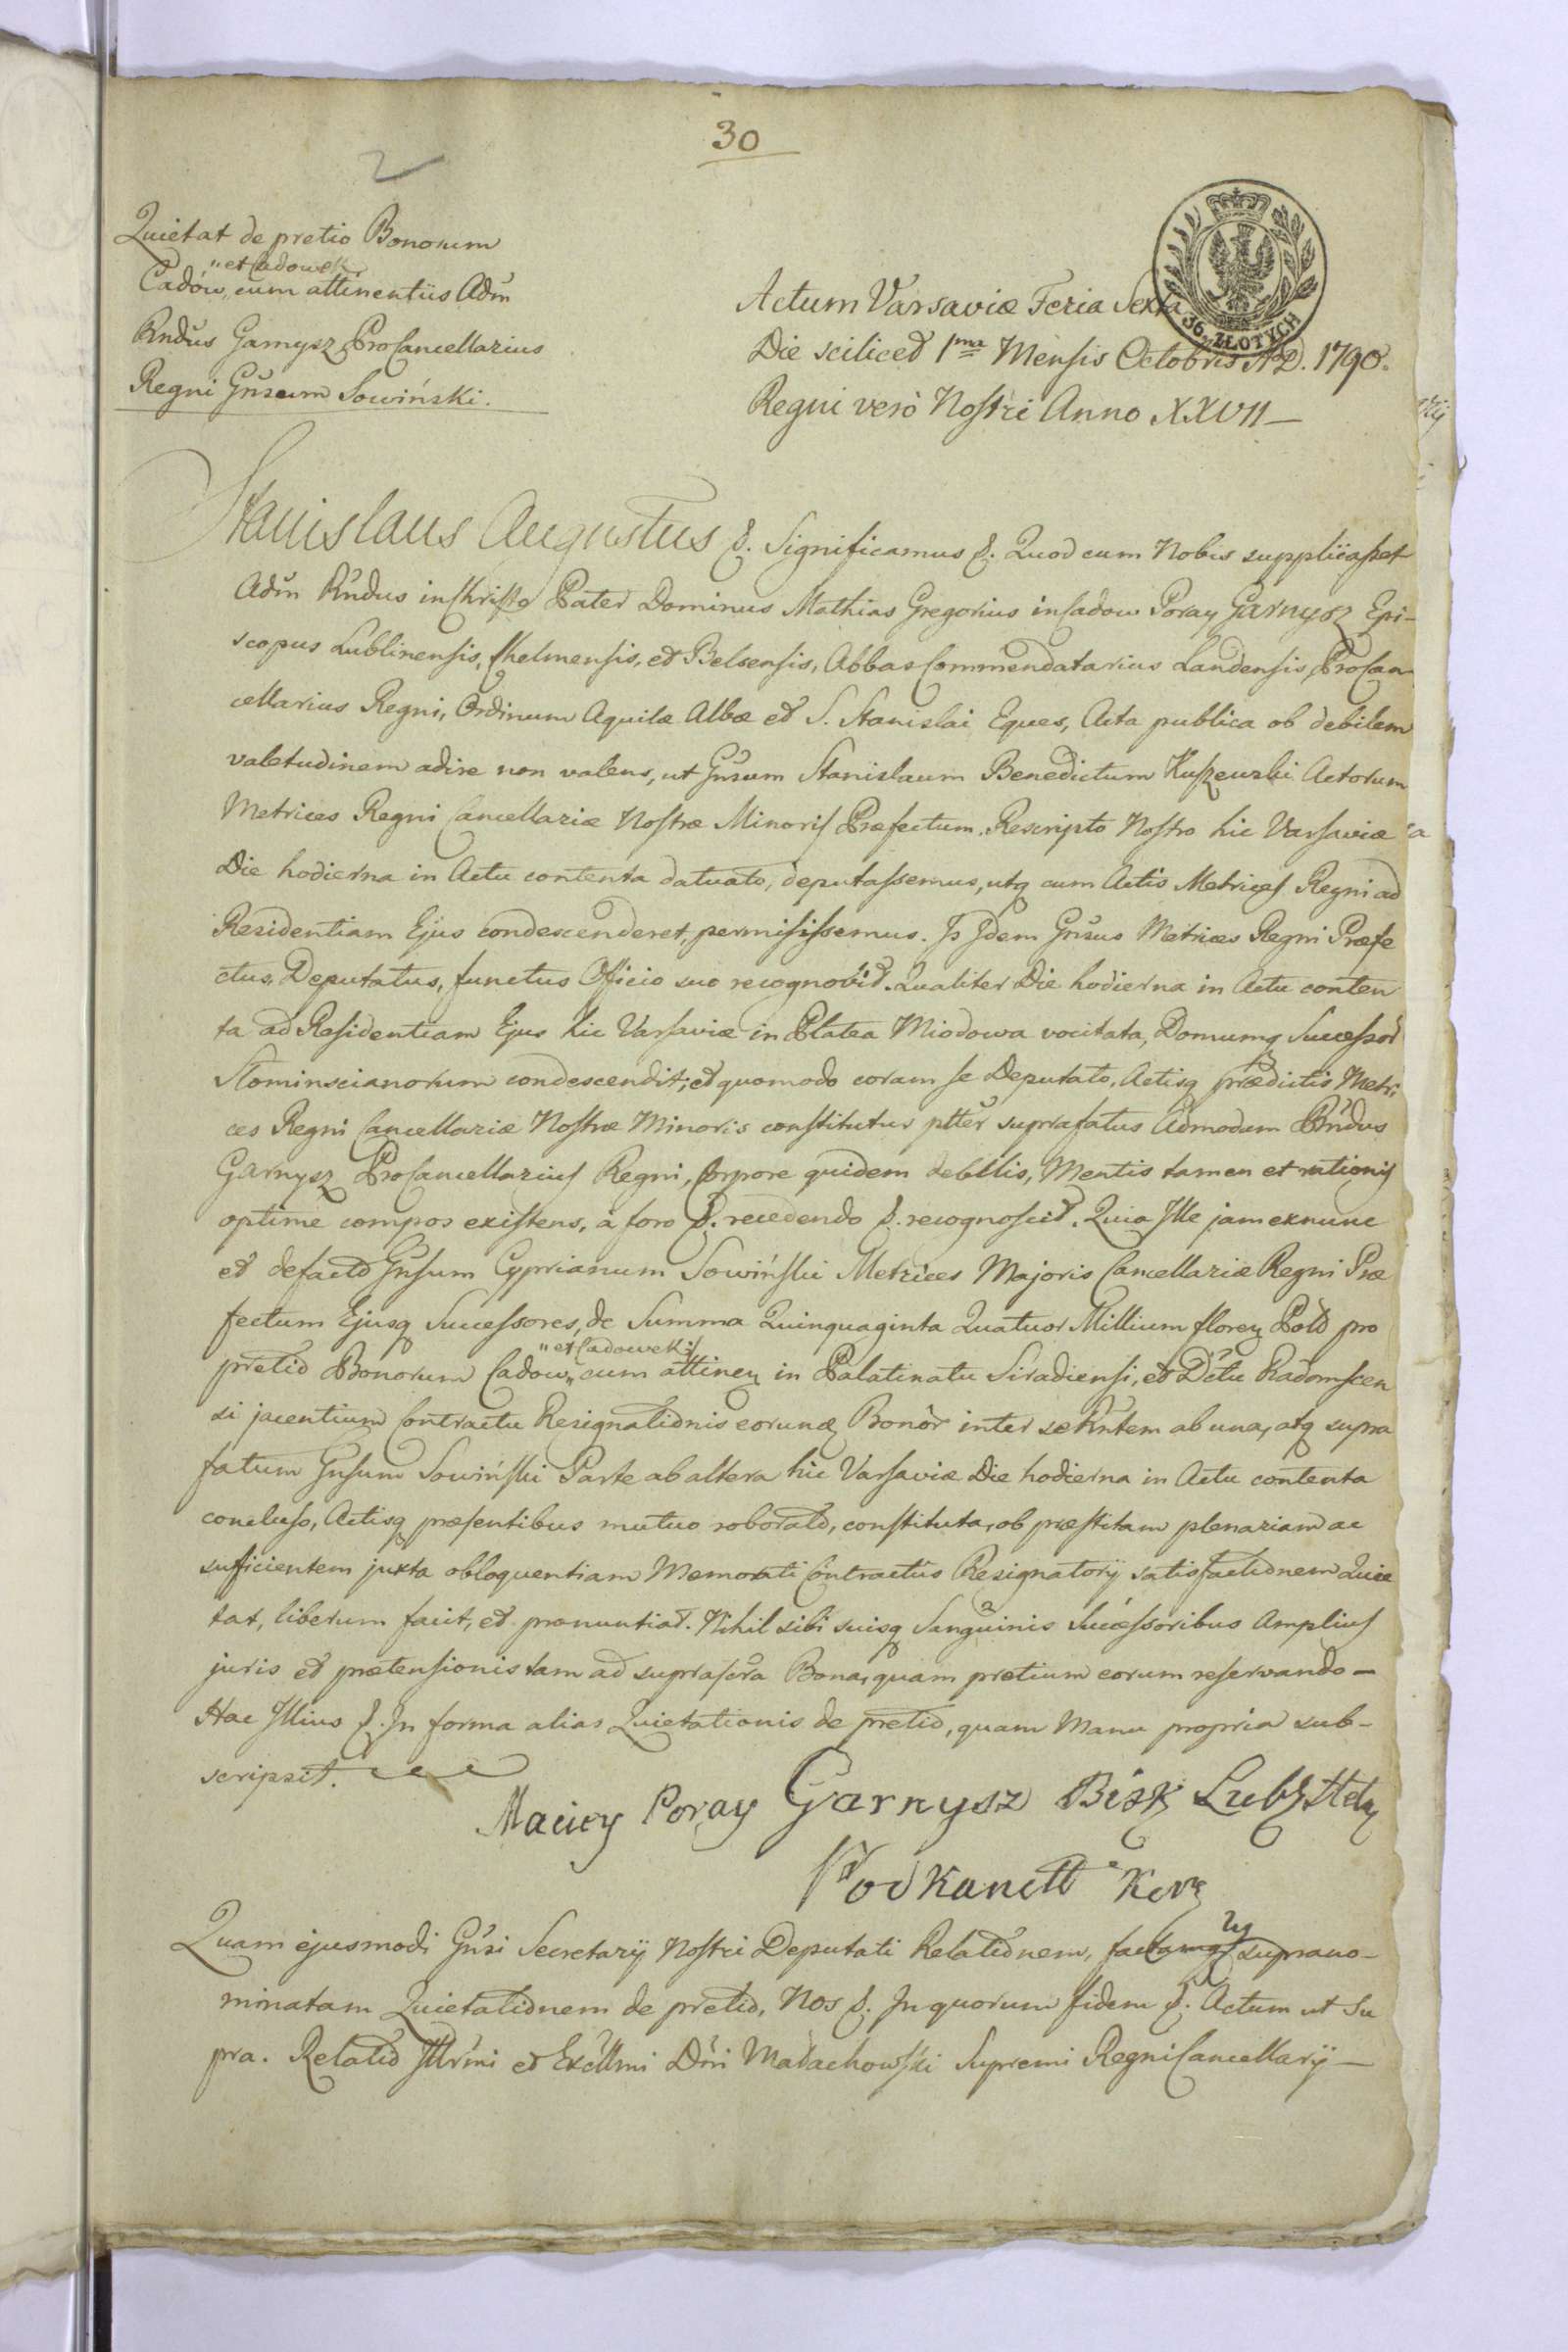 30
2
Quietat de pretio Bonorum
„et Cadowek
Cadów, cum attinentiis Adm̃
Rndus Garnysz ProCancellarius
Regni Gnsum Sowiński.
36. ZŁOTYCH
Actum Varsaviæ Feria Sexta
Die scilicet 1ma Mensis Octobris A.D. 1790.
Regni verò Nostri Anno XXVII—
Stanislaus Augustus &. Significamus &. Quod cum Nobis supplicasset
Adm̃ Rndus in Christo Pater Dominus Mathias Gregorius in Cadow Poray Garnysz Epi-
scopus Lublinensis, Chelmensis, et Belsensis, Abbas Commendatarius Landensis, ProCan
cellarius Regni, Ordinum Aquilæ Albæ et S. Stanislai Eques, Acta publica ob debilem
valetudinem adire non valens, ut Gnsum Stanislaum Benedictum Kuszewski Actorum
Metrices Regni Cancellariæ Nostræ Minoris Præfectum, Rescripto Nostro hic Varsaviæ
Die hodierna in Actu contenta datuato, deputassemus, utq cum Actis Metrices Regni ad
Residentiam Ejus condescenderet, permisissemus. Is Idem Gnsus Metrices Regni Præfe
ctus, Deputatus, functus Officio suo recognovit. Qualiter Die hodierna in Actu conten
ta ad Residentiam Ejus hic Varsaviæ in Platea Miodowa vocitata, Domumq Successor
Slominscianorum condescendit; et quomodo coram se Deputato, Actisq prædictis Metri
ces Regni Cancellariæ Nostræ Minoris constitutus ptter suprafatus Admodum Rndus
Garnysz ProCancellarius Regni, Corpore quidem debilis, Mentis tamen et rationis
optime compos existens, à foro &. recedendo &. recognoscit. Quia Ille jam exnunc
et defacto Gnsum Cyprianum Sowiński Metrices Majoris Cancellariæ Regni Præ
fectum Ejusq Successores, de Summa Quinquaginta Quatuor Millium floren Pold pro
„et Cadowek
pretio Bonorum Cadow„ cum attinen in Palatinatu Siradiensi, et Dctu Radomscen
si jacentium Contractu Resignationis eorund Bonor inter se Rntem ab una, atq supra
fatum Gnsum Sowiński Parte ab altera hic Varsaviæ Die hodierna in Actu contenta
concluso, Actisq præsentibus mutuo roborato, constituta, ob præstitam plenariam ac
suficientem juxta obloquentiam Memorati Contractûs Resignatorij satisfactionem Quie
tat, liberum facit, et pronuntiat. Nihil sibi suisq Sanguinis Successoribus Amplius
juris et prætensionis tam ad suprascra Bona, quam pretium eorum reservando—
Hac Illius &. In forma alias Quietationis de pretio, quam Manu propria sub-
scripsit.
Maciey Poray Garnysz Bisk Lub
Podkancll Kor
Quam ejusmodi Gnsi Secretarij Nostri Deputati Relationem, suprano-
minatam Quietationem de pretio, Nos &. In quorum fidem &. Actum ut Su
pra. Relatio Illrmi et Excellmi Dni Małachowski Supremi Regni Cancellarij—